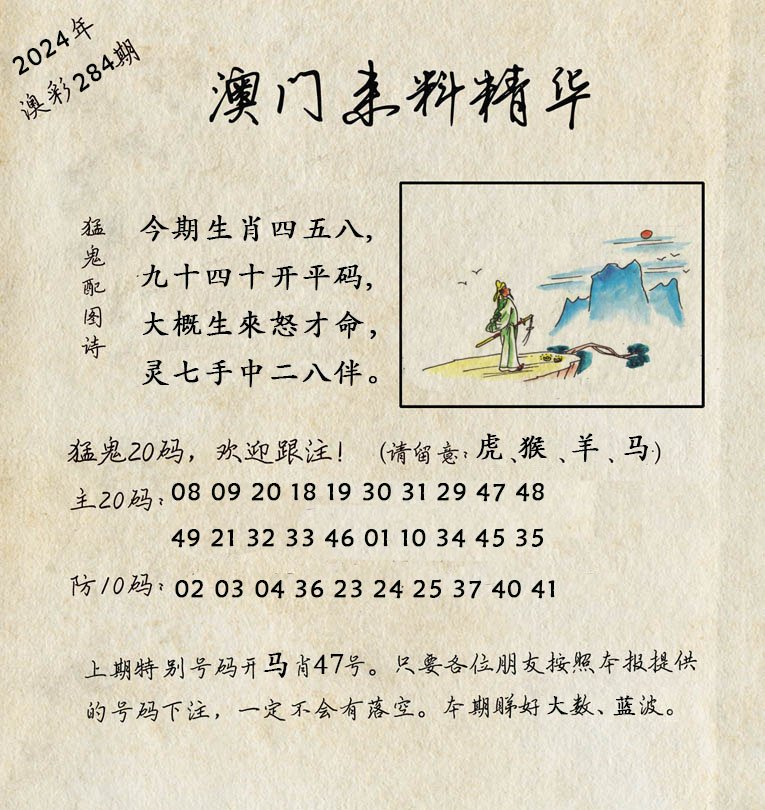 2024年
澳彩284期
澳门来料精华
猛鬼配图诗
今期生肖四五八,
九十四十开平码,
大概生來怒才命,
灵七手中二八伴。
猛鬼20码，欢迎跟注！（请留意：虎、猴、羊、马）
主20码：08 09 20 18 19 30 31 29 47 48
49 21 32 33 46 01 10 34 45 35
防10码：02 03 04 36 23 24 25 37 40 41
上期特别号码开马肖47号。只要各位朋友按照本报提供
的号码下注，一定不会有落空。本期睇好大数、蓝波。